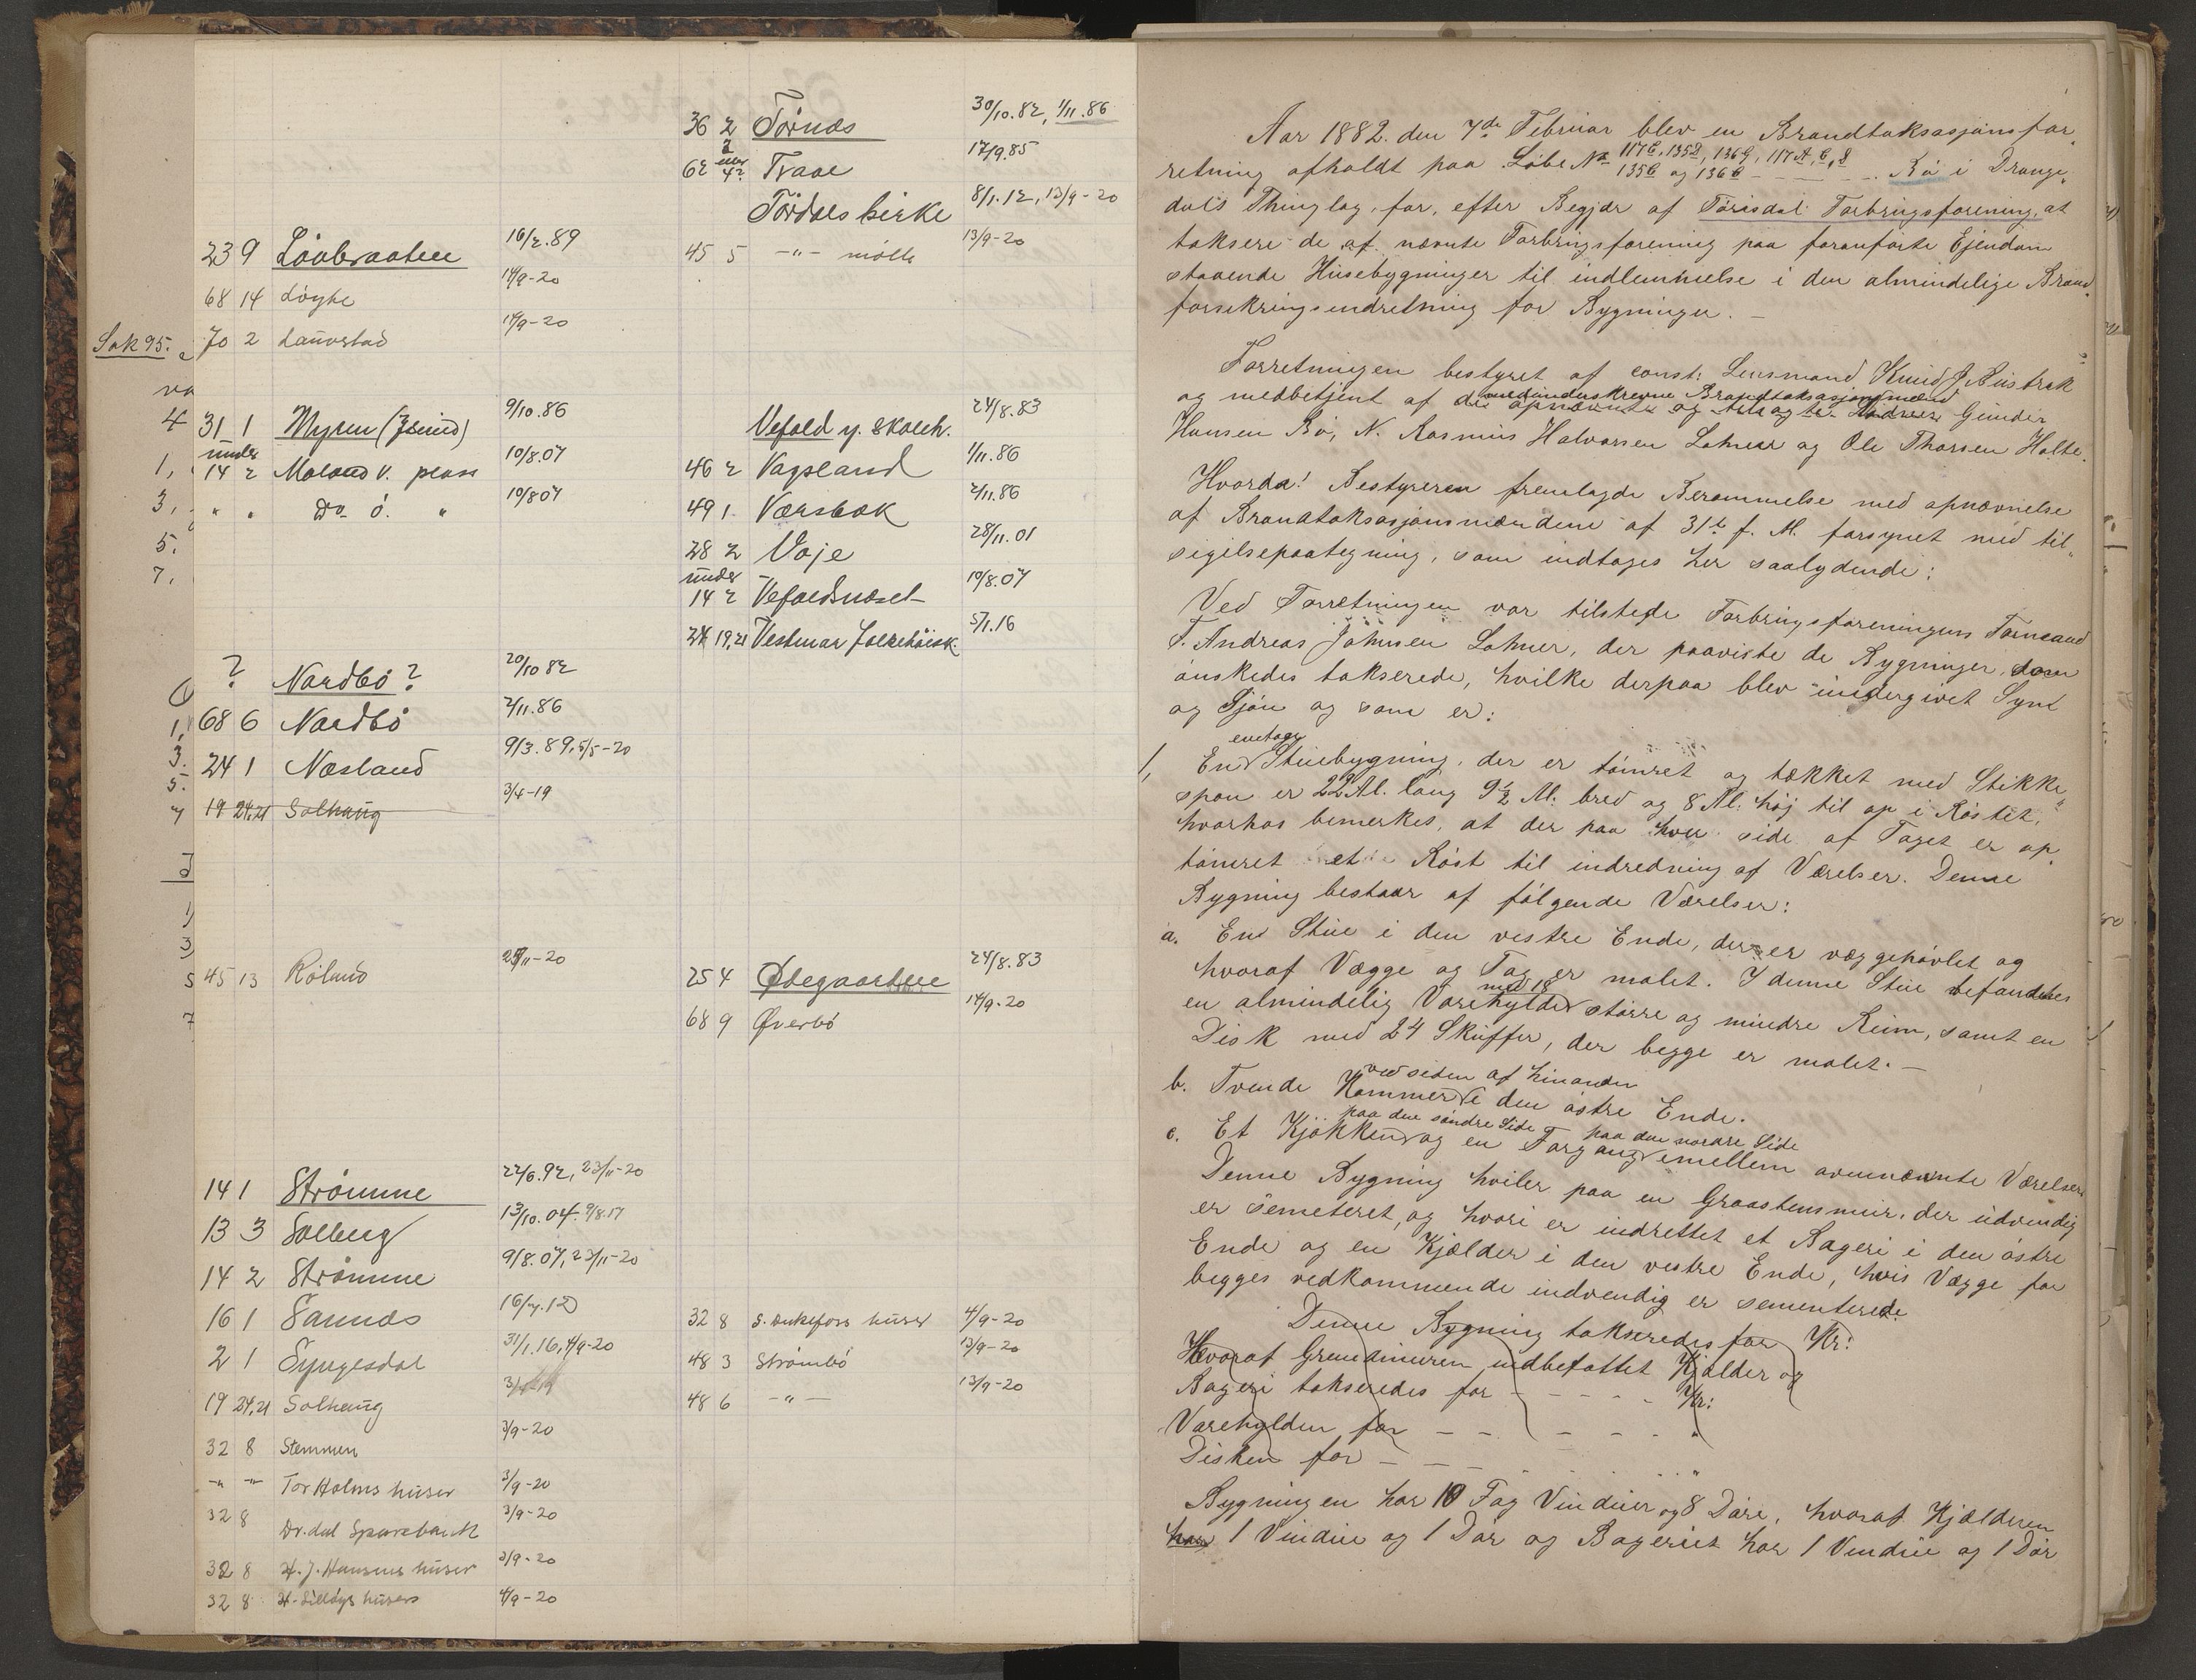 Sak 95.
23 9 Lövbraaten 16/2.89
68 14 Löyte 14/9-20
70 2 Laurstad 14/9-20
31 1 Myren 9/10.86
under
14 2 Moland V. plass 10/8.07
" " Do ö. " 10/8 07
? Nordbö? 20/10 82
68 6 Nordbö 2/11.86
24 1 Næsland 9/3.89, 5/5-20
19 24,21 Solhaug 3/4-19
45 13 Röland 23/11-20
14 1 Strömme 22/6.92, 23/11-20
13 3 Solberg 13/10.04. 9/8.17
14 2 Strömme 9/8.07, 23/11-20
16 1 Sannes 16/7.12
2 1 Syngesdal 31/1.16, 4/9-20
19 24,21 Solhaug
32 8 Stemmen 3/9-20
-"- -"- Tor Holms huser 3/9-20
32 8 Dr.dal Sparebank 3/9-20
32 8 H. J. Hansens huser 3/9-20
32 8 huser 4/9-20
36 2 Törnes 30/10.82, 1/11.86
62 Traae 17/9.85
Tördals kirke 8/1.12, 13/9-20
45 5 -"- mölle 13/9-20
Vefald y. Skoleh. 24/8.83
46 2 Vagsland 1/11.86
49 1 Værsbak 2/11.86
28 2 Voje 28/11.01
under
14 2 Vefaldsneset 10/8.07
24 19,21 Vestmar Folkehöisk. 5/1.16
25 4 Ødegaarden 24/8.83
68 9 Øverbö 14/9-20
32 8 S. Dukefoss huser 4/9-20
48 3 Strömbö 13/9-20
48 6 -"- 13/9-20
Aar 1882. den 7de Februar blev en Brandtaksasjonsfor„
retning afholdt paa Löbe No 117C, 135D, 136G, 117A, C, D
135C og 136C - - - Bö i Drange„
dals Thinglag, for, efter Begjær af Törisdal Forbrugsforening, at
taksere de af nævnte Forbrugsforening paa foranførte Ejendom
staaende Husebygninger til indlemmelse i den almindelige Brand„
forsikringsindretning for Bygninger. -
Forretningen bestyret af const: Lensmand Knud J. Austrak
og medbetjent af de opnævnte og tilsagte
medunderskrevne Brandtaksasjonsmænd
Andreas Gunder
Hansen Bö, N. Rasmus Halvorsen Lohner og Ole Thorsen Holte.
Hvorda! Bestyreren fremlagde Berammelse med opnævnelse
af Brandtaksasjonsmændene af 31te f. M. forsynet med til„
sigelsepaategning, som indtages her saalydende:
Ved Forretningen var tilstede Forbrugsforeningens Formand
T. Andreas Johnsen Lohner, der paaviste de Bygninger, som
önskedes takserede, hvilke derpaa blev undergivet Syn
og Sjön og som er:
1, En enetages Stuebygning, der er tömret og tækket med Stikke„
spon er 22 Al. lang 9½ Al. bred og 8 Al. höj til op i Röstet,
hvorhos bemerkes, at der paa hver side af Taget er op„
tömret et Röst til indredning af Værelser. Denne
Bygning bestaar af fölgende Værelser:
a. En Stue i den vestre Ende, der er væggehövlet og
hvoraf Vægge og Tag er malet. I denne Stue befandtes
en almindelig Varehylde med 18 större og mindre Rum, samt en
Disk med 24 Skuffer, der begge er malet. -
b. Tvende Kammer ved siden af hinanden i den östre Ende.
c. Et Kjökken paa den söndre Side og en Forgang paa den nordre Side imellem ovennævnte Værelser
Denne Bygning hviler paa en Graastensmur, der udvendig
er semeteret, og hvori er indrettet et Bageri i den östre
Ende og en Kjælder i den vestre Ende, hvis Vægge for
begges vedkommende indvendig er sementerede.
Denne Bygning takseredes for Kr:
Hvoraf Grundmuren indbefattet Kjælder og
Bageri takseredes for - - - - Kr:
Varehylden for - - - - - "
Disken for - - - "
Bygningen har 10 Fag Vinduer og 8 Döre, hvoraf Kjælderen
har 1 Vindue og 1 Dör og Bageriet har 1 Vindue og 1 Dör